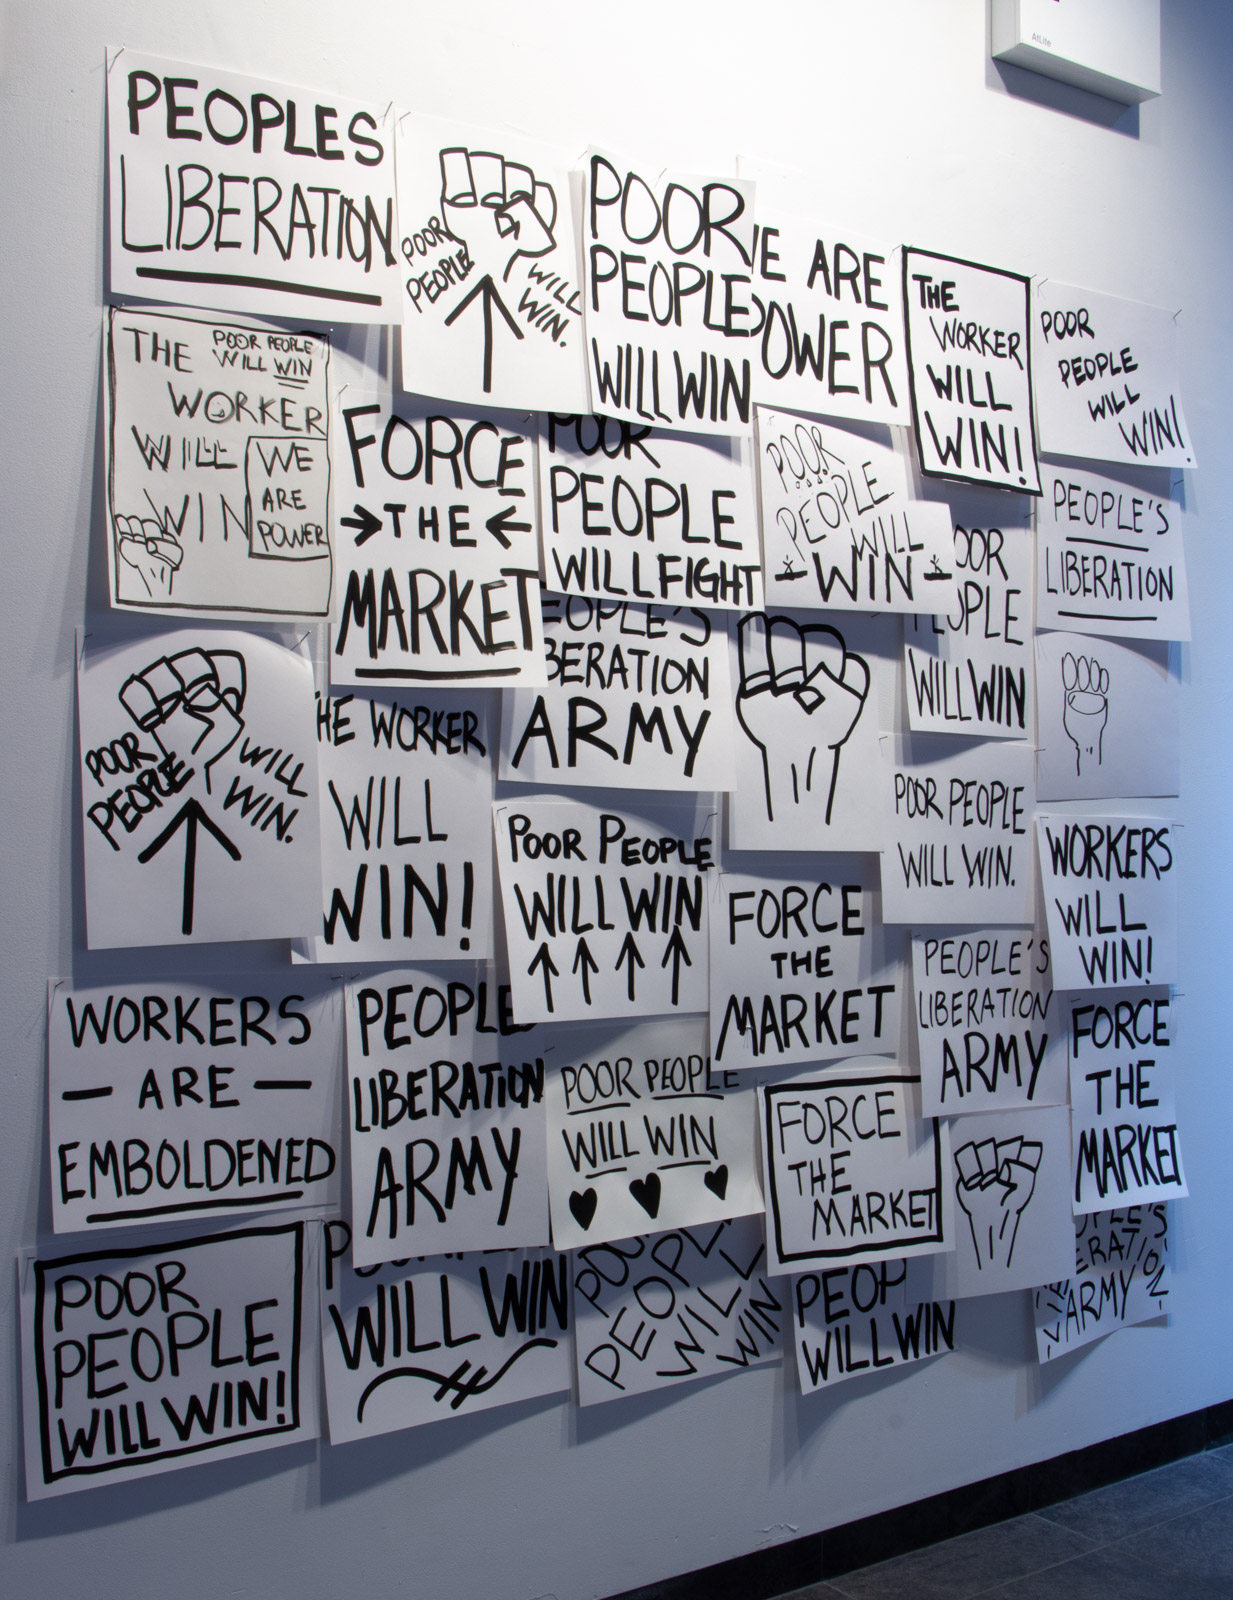 AtLite
PEOPLES
LIBERATION
POOR
PEOPLE
WILL
WIN.
POOR
PEOPLE
WILL WIN
E ARE
POWER
THE
WORKER
WILL
WIN!
POOR
PEOPLE
WILL
WIN!
THE
POOR PEOPLE
WILL WIN
WORKER
WILL
WIN
WE
ARE
POWER
FORCE
THE
MARKET
POOR
PEOPLE
WILL FIGHT
POOR
PEOPLE
WILL
WIN
OOR
PEOPLE
WILL WIN
PEOPLE'S
LIBERATION
POOR
PEOPLE
WILL
WIN.
HE WORKER
WILL
WIN!
EOPLE'S
BERATION
ARMY
POOR PEOPLE
WILL WIN
POOR PEOPLE
WILL WIN.
WORKERS
WILL
WIN!
FORCE
THE
MARKET
PEOPLE'S
LIBERATION
ARMY
FORCE
THE
MARKET
WORKERS
ARE
EMBOLDENED
PEOPLE
LIBERATION
ARMY
POOR PEOPLE
WILL WIN
FORCE
THE
MARKET
POOR
PEOPLE
WILL WIN!
WILL WIN
POOR
PEOPLE
WILL
WIN
PEOP
WILL WIN
OPLE'S
ERATION
ARMY